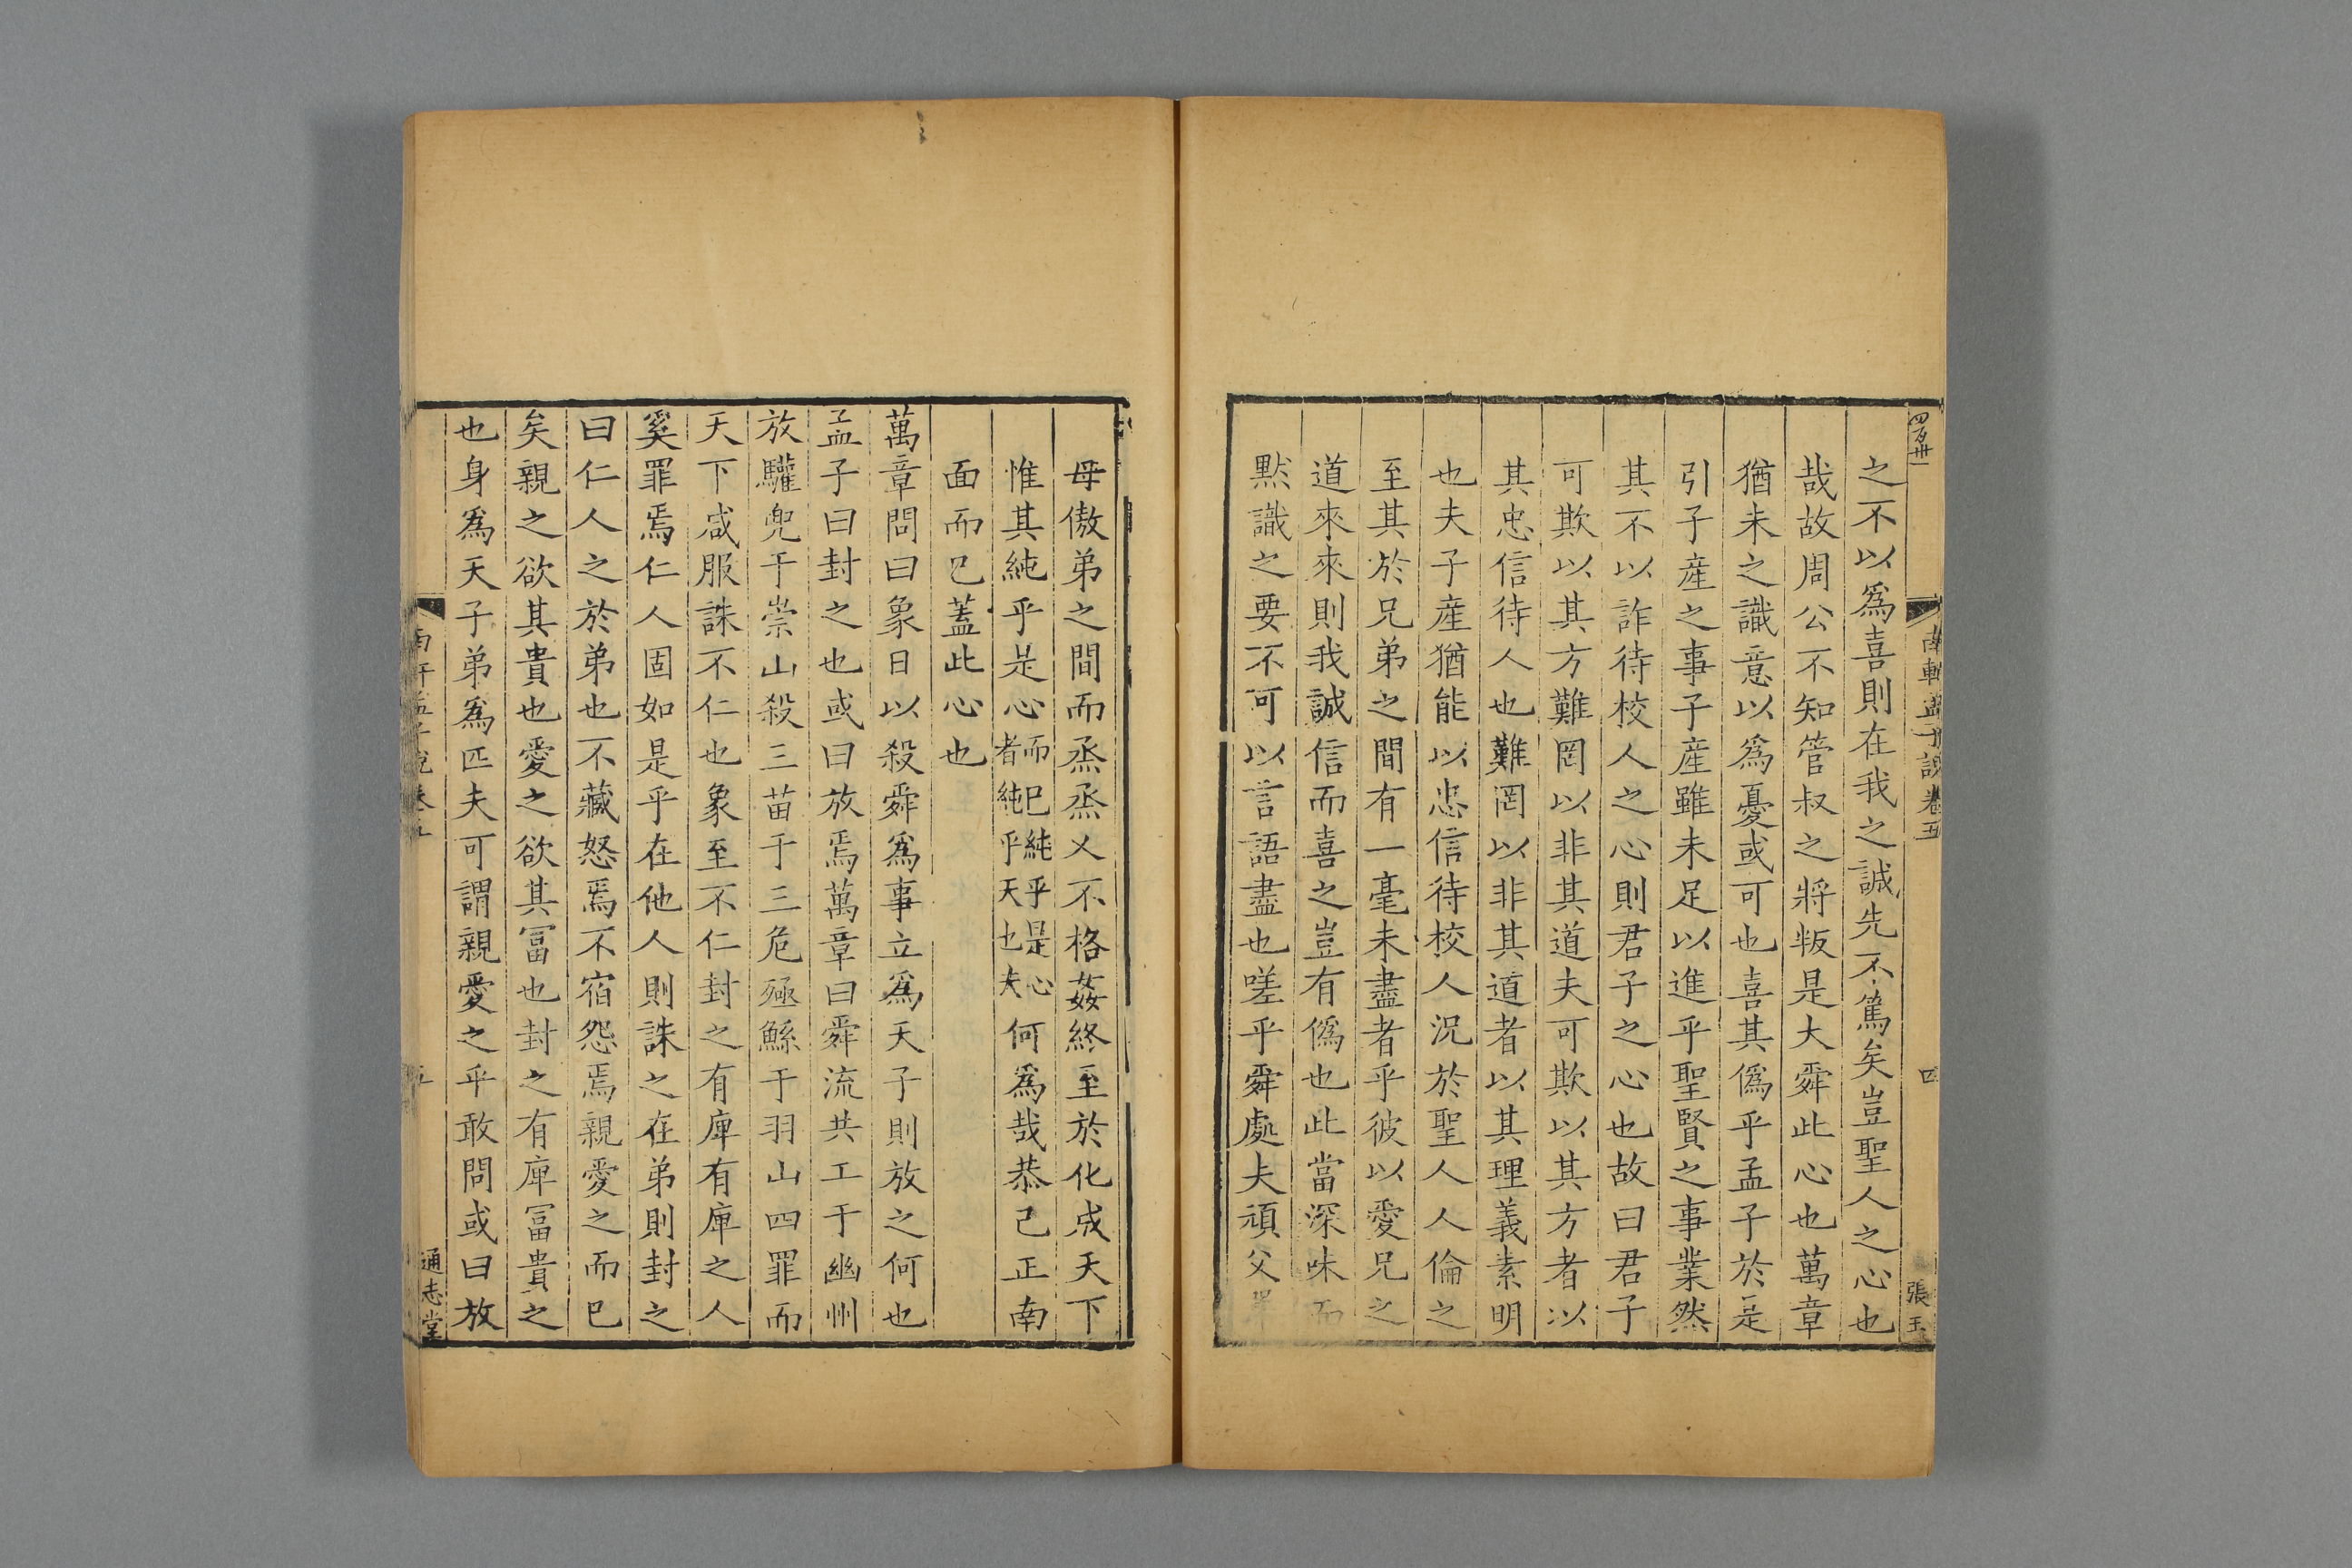 南軒孟子說卷五
四
張玉
之不以爲喜則在我之誠先不篤矣豈聖人之心也
哉故周公不知管叔之將叛是大舜此心也萬章
猶未之識意以爲憂或可也喜其僞乎孟子於是
引子産之事子産雖未足以進乎聖賢之事業然
其不以詐待校人之心則君子之心也故曰君子
可欺以其方難罔以非其道夫可欺以其方者以
其忠信待人也難罔以非其道者以其理義素明
也夫子産猶能以忠信待校人況於聖人人倫之
至其於兄弟之間有一毫未盡者乎彼以愛兄之
道來來則我誠信而喜之豈有僞也此當深味而
黙識之要不可以言語盡也嗟乎舜處夫頑父嚚
母傲弟之間而烝烝乂不格姦終至於化成天下
惟其純乎是心而已純乎是心者純乎天也夫何爲哉恭己正南
面而已蓋此心也
萬章問曰象日以殺舜爲事立爲天子則放之何也
孟子曰封之也或曰放焉萬章曰舜流共工于幽州
放驩兜于崇山殺三苗于三危殛鯀于羽山四罪而
天下咸服誅不仁也象至不仁封之有庳有庳之人
奚罪焉仁人固如是乎在他人則誅之在弟則封之
曰仁人之於弟也不藏怒焉不宿怨焉親愛之而已
矣親之欲其貴也愛之欲其冨也封之有庳冨貴之
也身爲天子弟爲匹夫可謂親愛之乎敢問或曰放
通志堂